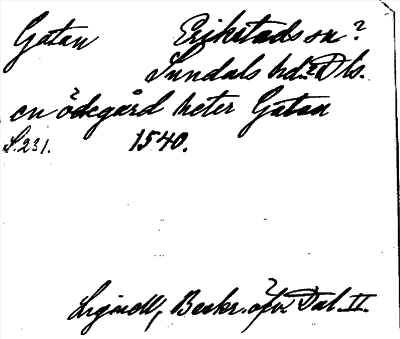 Gatan Erikstads sn?
Sundals hd. Dls.
en ödegård heter Gatan
S. 231. 1540.
Lignell, Beskr. öfv. Dal. II.